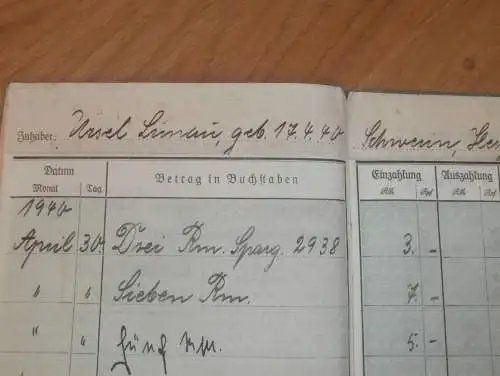 Inhaber: Ursel Lunau, geb. 17.4.40 Schwerin,
Datum Betrag in Buchstaben Einzahlung Auszahlung
Monat Tag RM Rpf RM Rpf
1940
April 30. Drei Rm. Sparg. 2938 3. -
" " Sieben Rm. 7. -
" " Fünf Rm. 5. -